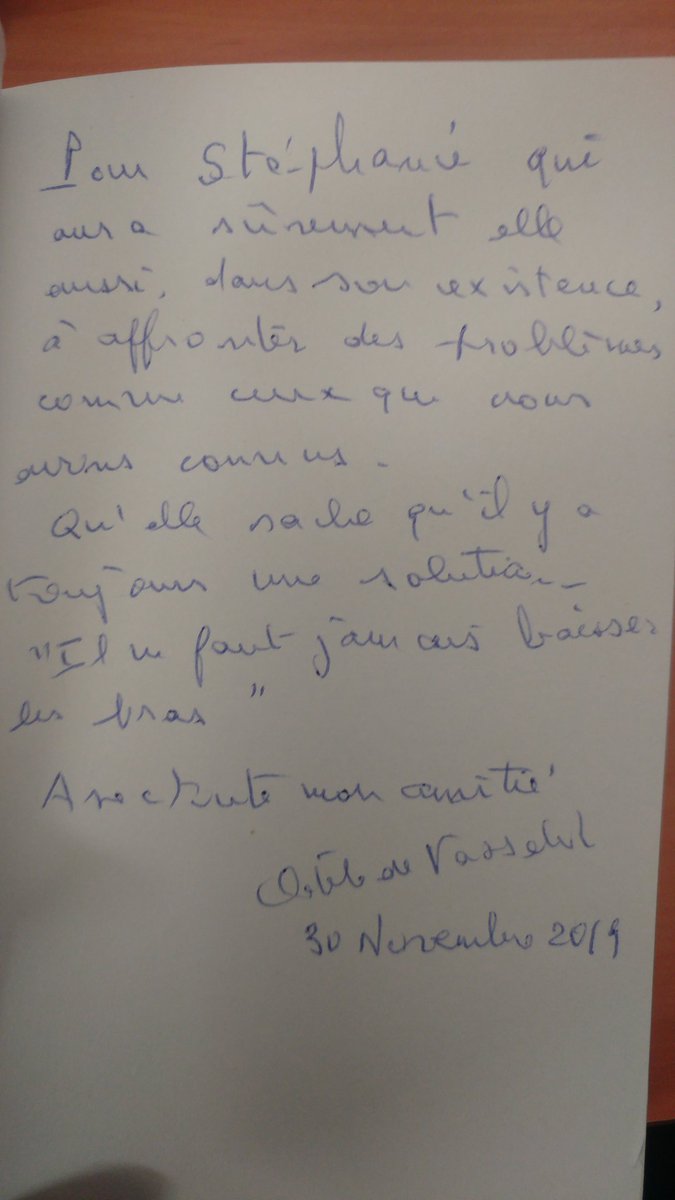 Pour Stéphanie qui
aura sûrement elle
aussi, dans son existence,
à affronter des problèmes
comme ceux que nous
avons connus.
Qu'elle sache qu'il y a
toujours une solution...
"Il ne faut jamais baisser
les bras"
Avec toute mon amitié
Odile de Vasselot
30 Novembre 2019